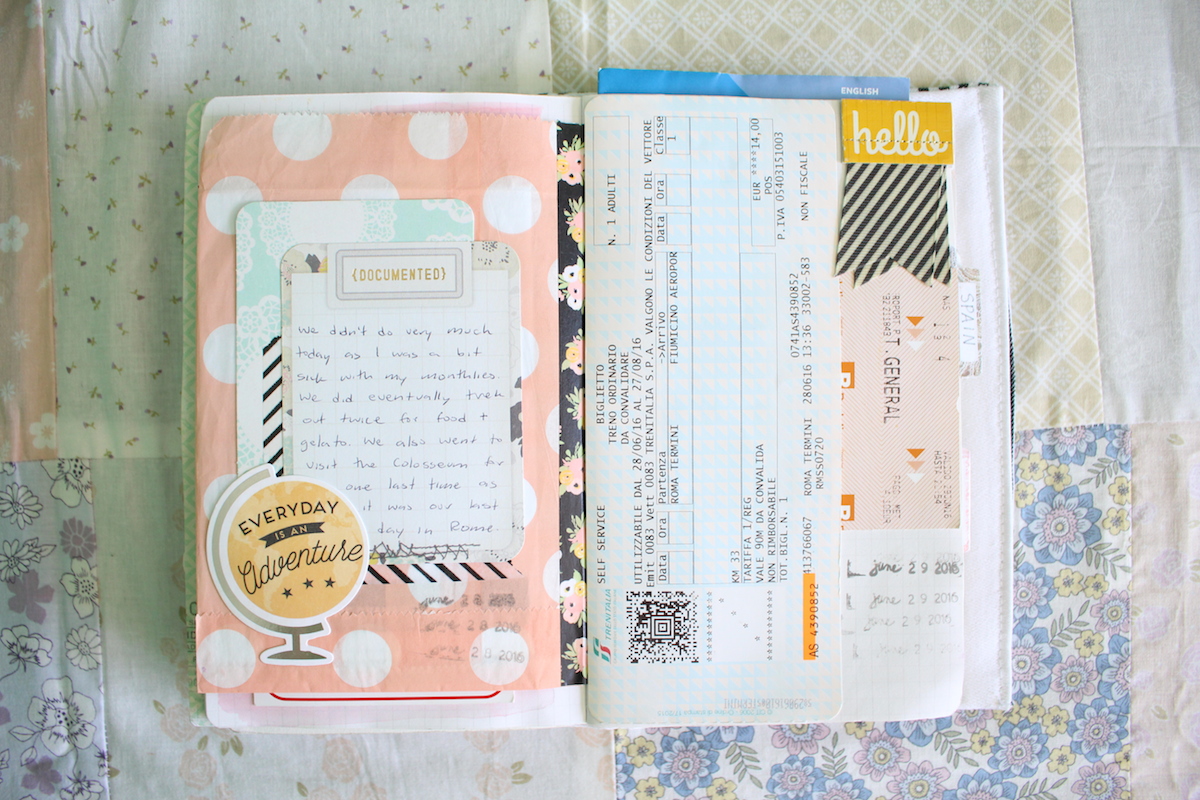 {DOCUMENTED}
We didn't do very much
today as I was a bit
sick with my monthlies.
We did eventually trek
out twice for food +
gelato. We also went to
visit the Colosseum for
one last time as
it was our last
day in Rome.
EVERYDAY
IS AN
Adventure
28 2016
28 2016
28 2016
ENGLISH
hello
SPAIN
SELF SERVICE
BIGLIETTO
TRENO ORDINARIO
DA CONVALIDARE
N. 1 ADULTI
UTILIZZABILE DAL 28/06/16 AL 27/08/16
Emit 0083 Vett 0083 TRENITALIA S.P.A. VALGONO LE CONDIZIONI DEL VETTORE
Data Ora Partenza ->Arrivo Data Ora Classe
ROMA TERMINI FIUMICINO AEROPOR 1
KM 33
TARIFFA 1/REG
VALE 90M DA CONVALIDA
NON RIMBORSABILE
TOT.BIGL.N. 1
EUR ****14,00
POS
P.IVA 05403151003
0741AS4390852
ROMA TERMINI 280616 13:36 33002-583
RMSS0720
NON FISCALE
AS 4390852
TRENITALIA
T. GENERAL
june 29 2016
june 29 2016
june 29 2016